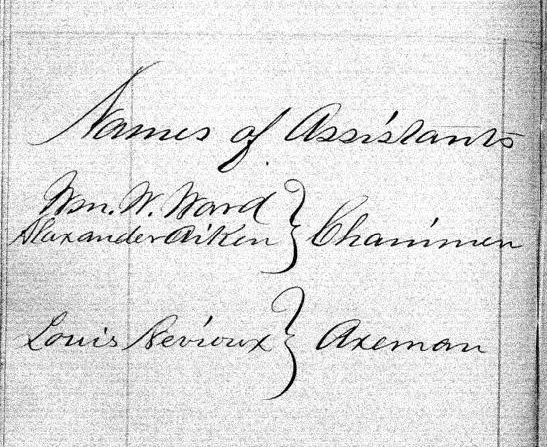 Names of Assistants
Wm. W. Ward
Alexander Aiken } Chainmen
Louis } Axeman